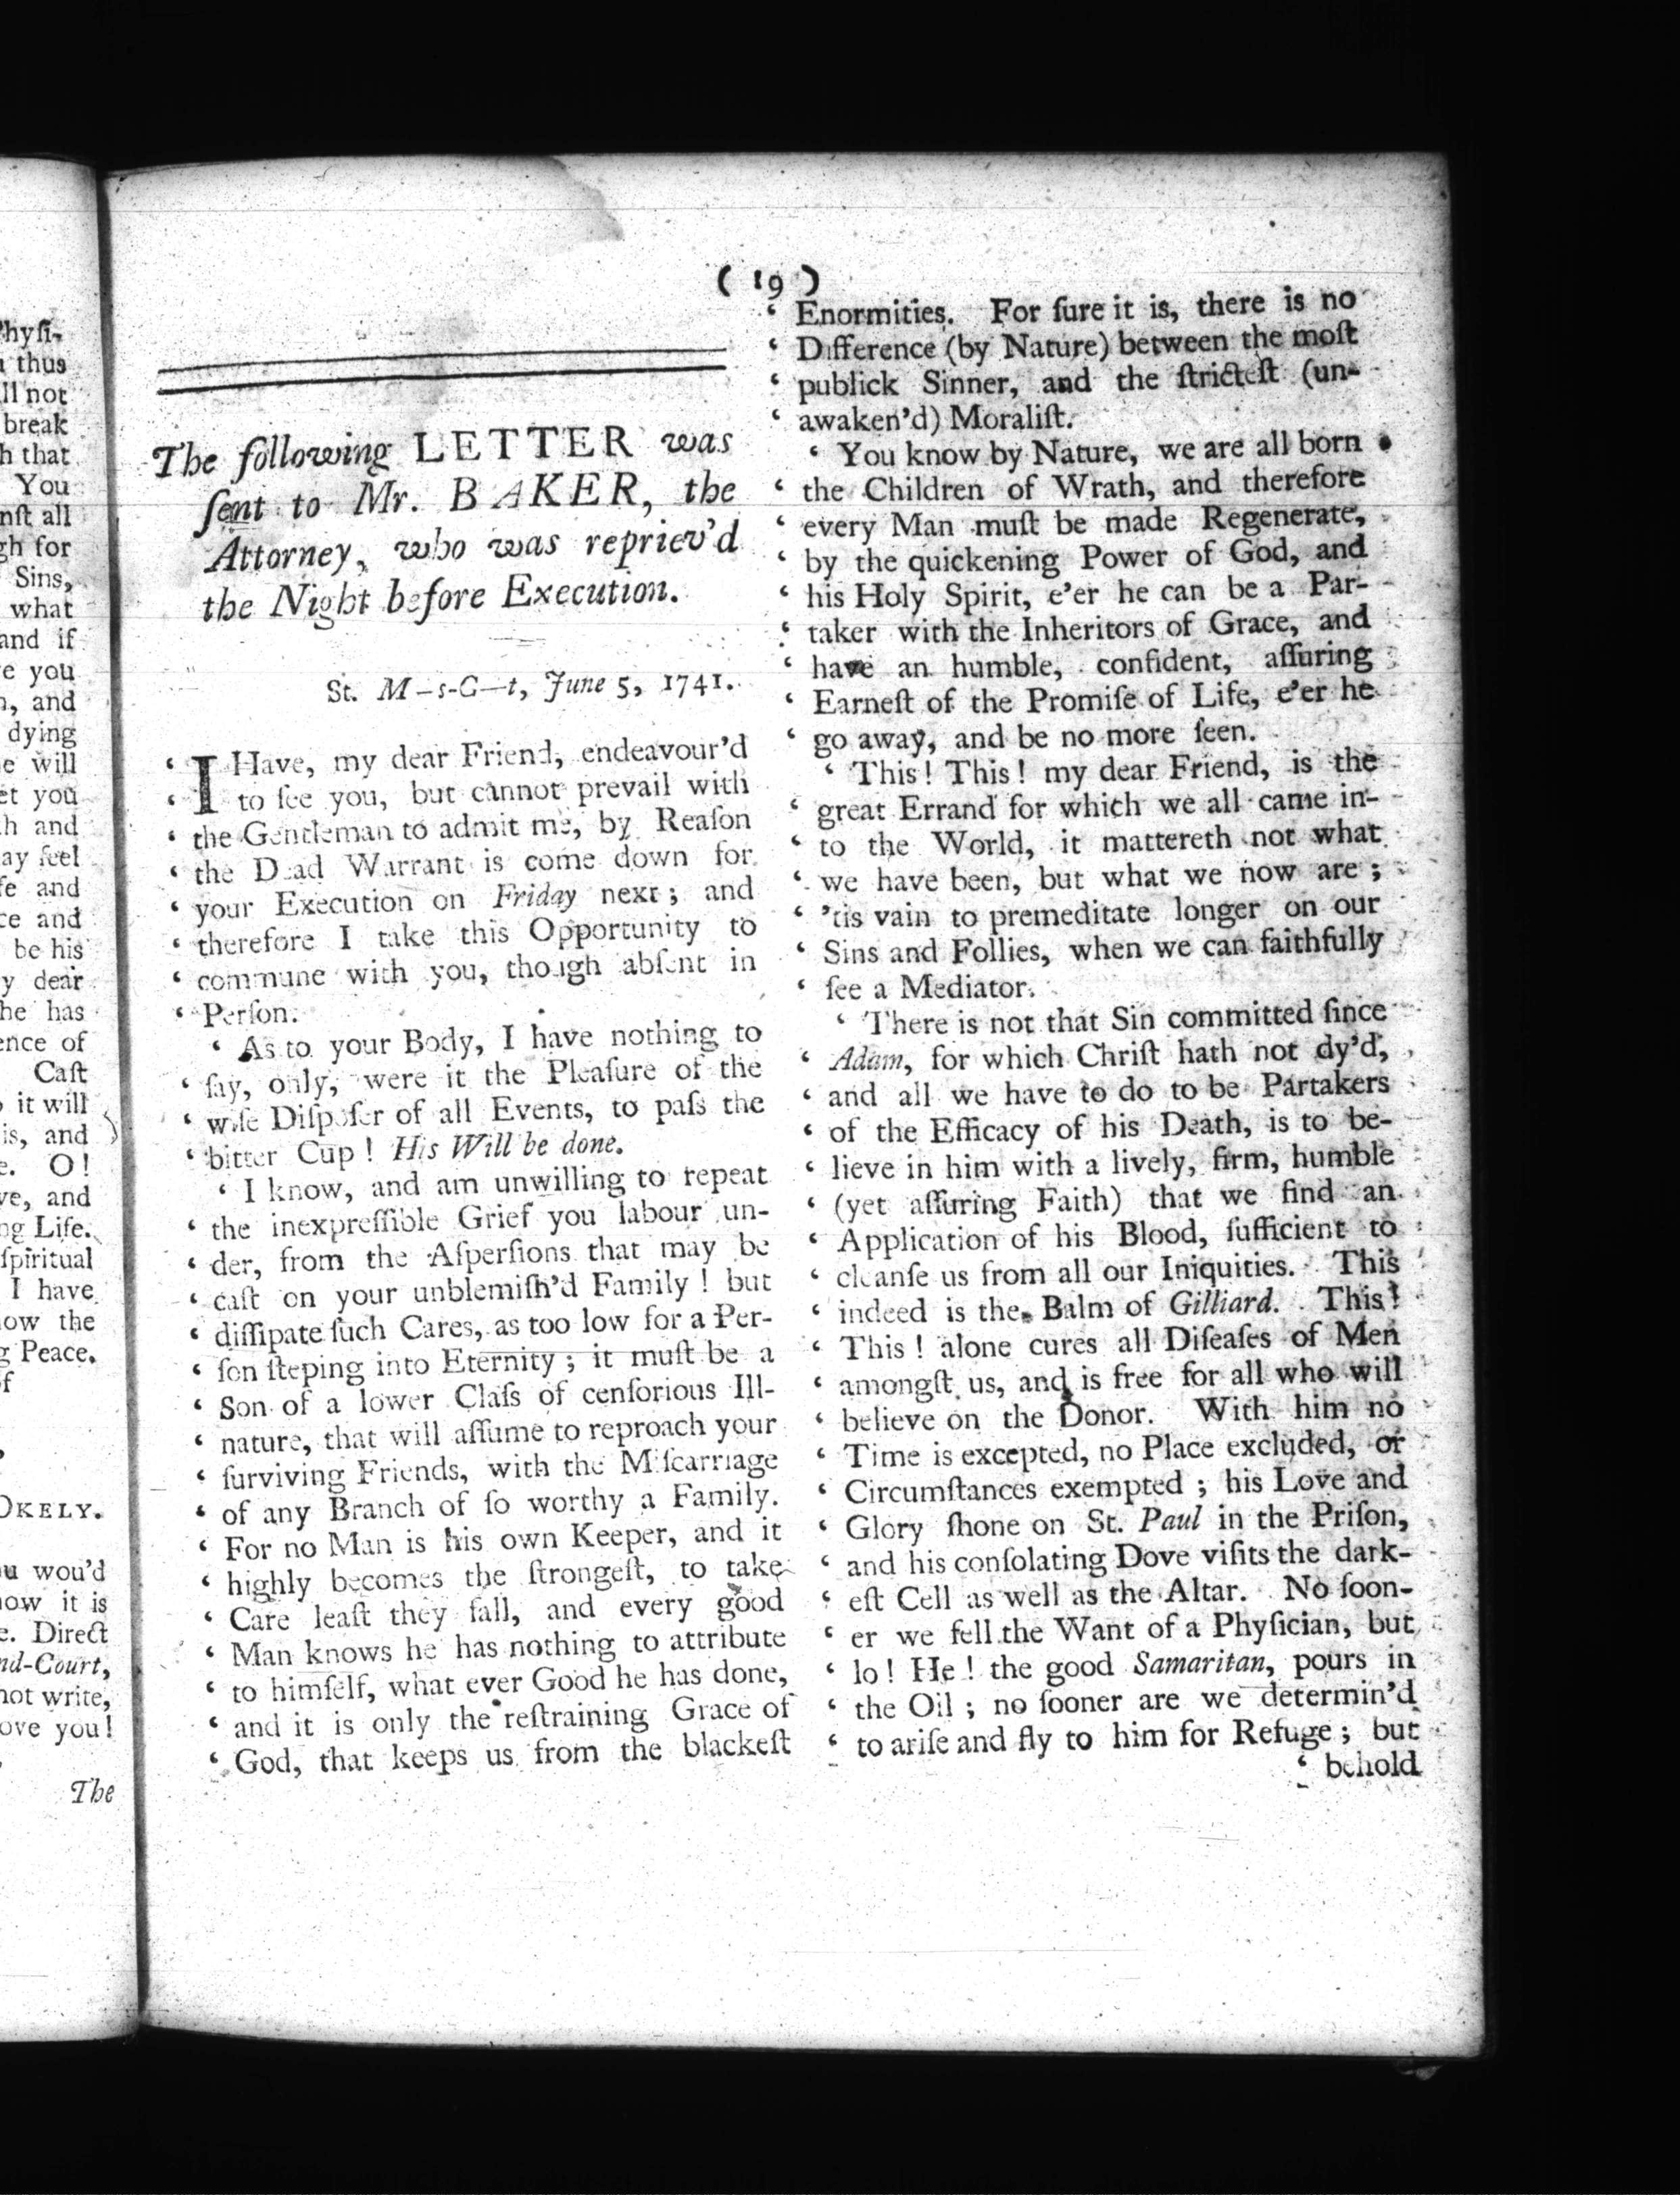 hyſi-
thus
ll not
break
h that
You
nſt all
gh for
Sins,
what
and if
e you
, and
dying
e will
et you
h and
ay feel
fe and
ce and
be his
y dear
he has
ence of
Caſt
it will
is, and
e. O!
ve, and
ng Life.
ſpiritual
I have
ow the
g Peace.
f
OKELY.
u wou'd
ow it is
e. Direct
nd-Court,
not write,
ove you!
The
( 19 )
The following LETTER was
ſent to Mr. BAKER, the
Attorney, who was repriev'd
the Night before Execution.
St. M–s-C–t, June 5, 1741.
‘ I Have, my dear Friend, endeavour'd
‘ to ſee you, but cannot prevail with
‘ the Gentleman to admit me, by Reaſon
‘ the Dead Warrant is come down for
‘ your Execution on Friday next; and
‘ therefore I take this Opportunity to
‘ commune with you, though abſent in
‘ Perſon.
‘ As to your Body, I have nothing to
‘ ſay, only, were it the Pleaſure of the
‘ wiſe Diſpoſer of all Events, to paſs the
‘ bitter Cup! His Will be done.
‘ I know, and am unwilling to repeat
‘ the inexpreſſible Grief you labour un-
‘ der, from the Aſperſions that may be
‘ caſt on your unblemiſh'd Family! but
‘ diſſipate ſuch Cares, as too low for a Per-
‘ ſon ſteping into Eternity; it muſt be a
‘ Son of a lower Claſs of cenſorious Ill-
‘ nature, that will aſſume to reproach your
‘ ſurviving Friends, with the Miſcarriage
‘ of any Branch of ſo worthy a Family.
‘ For no Man is his own Keeper, and it
‘ highly becomes the ſtrongeſt, to take
‘ Care leaſt they fall, and every good
‘ Man knows he has nothing to attribute
‘ to himſelf, what ever Good he has done,
‘ and it is only the reſtraining Grace of
‘ God, that keeps us from the blackeſt
‘ Enormities. For ſure it is, there is no
‘ Difference (by Nature) between the moſt
‘ publick Sinner, and the ſtricteſt (un-
‘ awaken'd) Moraliſt.
‘ You know by Nature, we are all born
‘ the Children of Wrath, and therefore
‘ every Man muſt be made Regenerate,
‘ by the quickening Power of God, and
‘ his Holy Spirit, e'er he can be a Par-
‘ taker with the Inheritors of Grace, and
‘ have an humble, confident, aſſuring
‘ Earneſt of the Promiſe of Life, e'er he
‘ go away, and be no more ſeen.
‘ This! This! my dear Friend, is the
‘ great Errand for which we all came in-
‘ to the World, it mattereth not what
‘ we have been, but what we now are;
‘ 'tis vain to premeditate longer on our
‘ Sins and Follies, when we can faithfully
‘ ſee a Mediator.
‘ There is not that Sin committed ſince
‘ Adam, for which Chriſt hath not dy'd,
‘ and all we have to do to be Partakers
‘ of the Efficacy of his Death, is to be-
‘ lieve in him with a lively, firm, humble
‘ (yet aſſuring Faith) that we find an
‘ Application of his Blood, ſufficient to
‘ cleanſe us from all our Iniquities. This
‘ indeed is the Balm of Gilliard. This!
‘ This! alone cures all Diſeaſes of Men
‘ amongſt us, and is free for all who will
‘ believe on the Donor. With him no
‘ Time is excepted, no Place excluded, or
‘ Circumſtances exempted; his Love and
‘ Glory ſhone on St. Paul in the Priſon,
‘ and his conſolating Dove viſits the dark-
‘ eſt Cell as well as the Altar. No ſoon-
‘ er we fell the Want of a Phyſician, but
‘ lo! He! the good Samaritan, pours in
‘ the Oil; no ſooner are we determin'd
‘ to ariſe and fly to him for Refuge; but
‘ behold